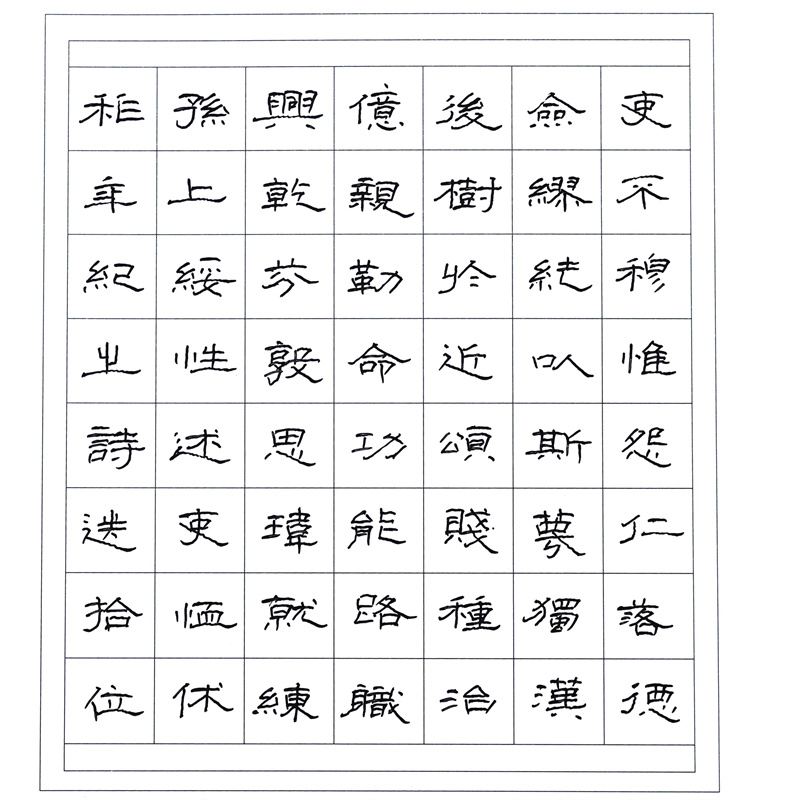 吏不穆惟怨仁落德
僉繆統以斯獨漢
後樹於近頌賤種治
億親勒命功能路職
興乾芬敦思瑋就練
孫上綏性述吏恤休
年紀之詩迭拾位